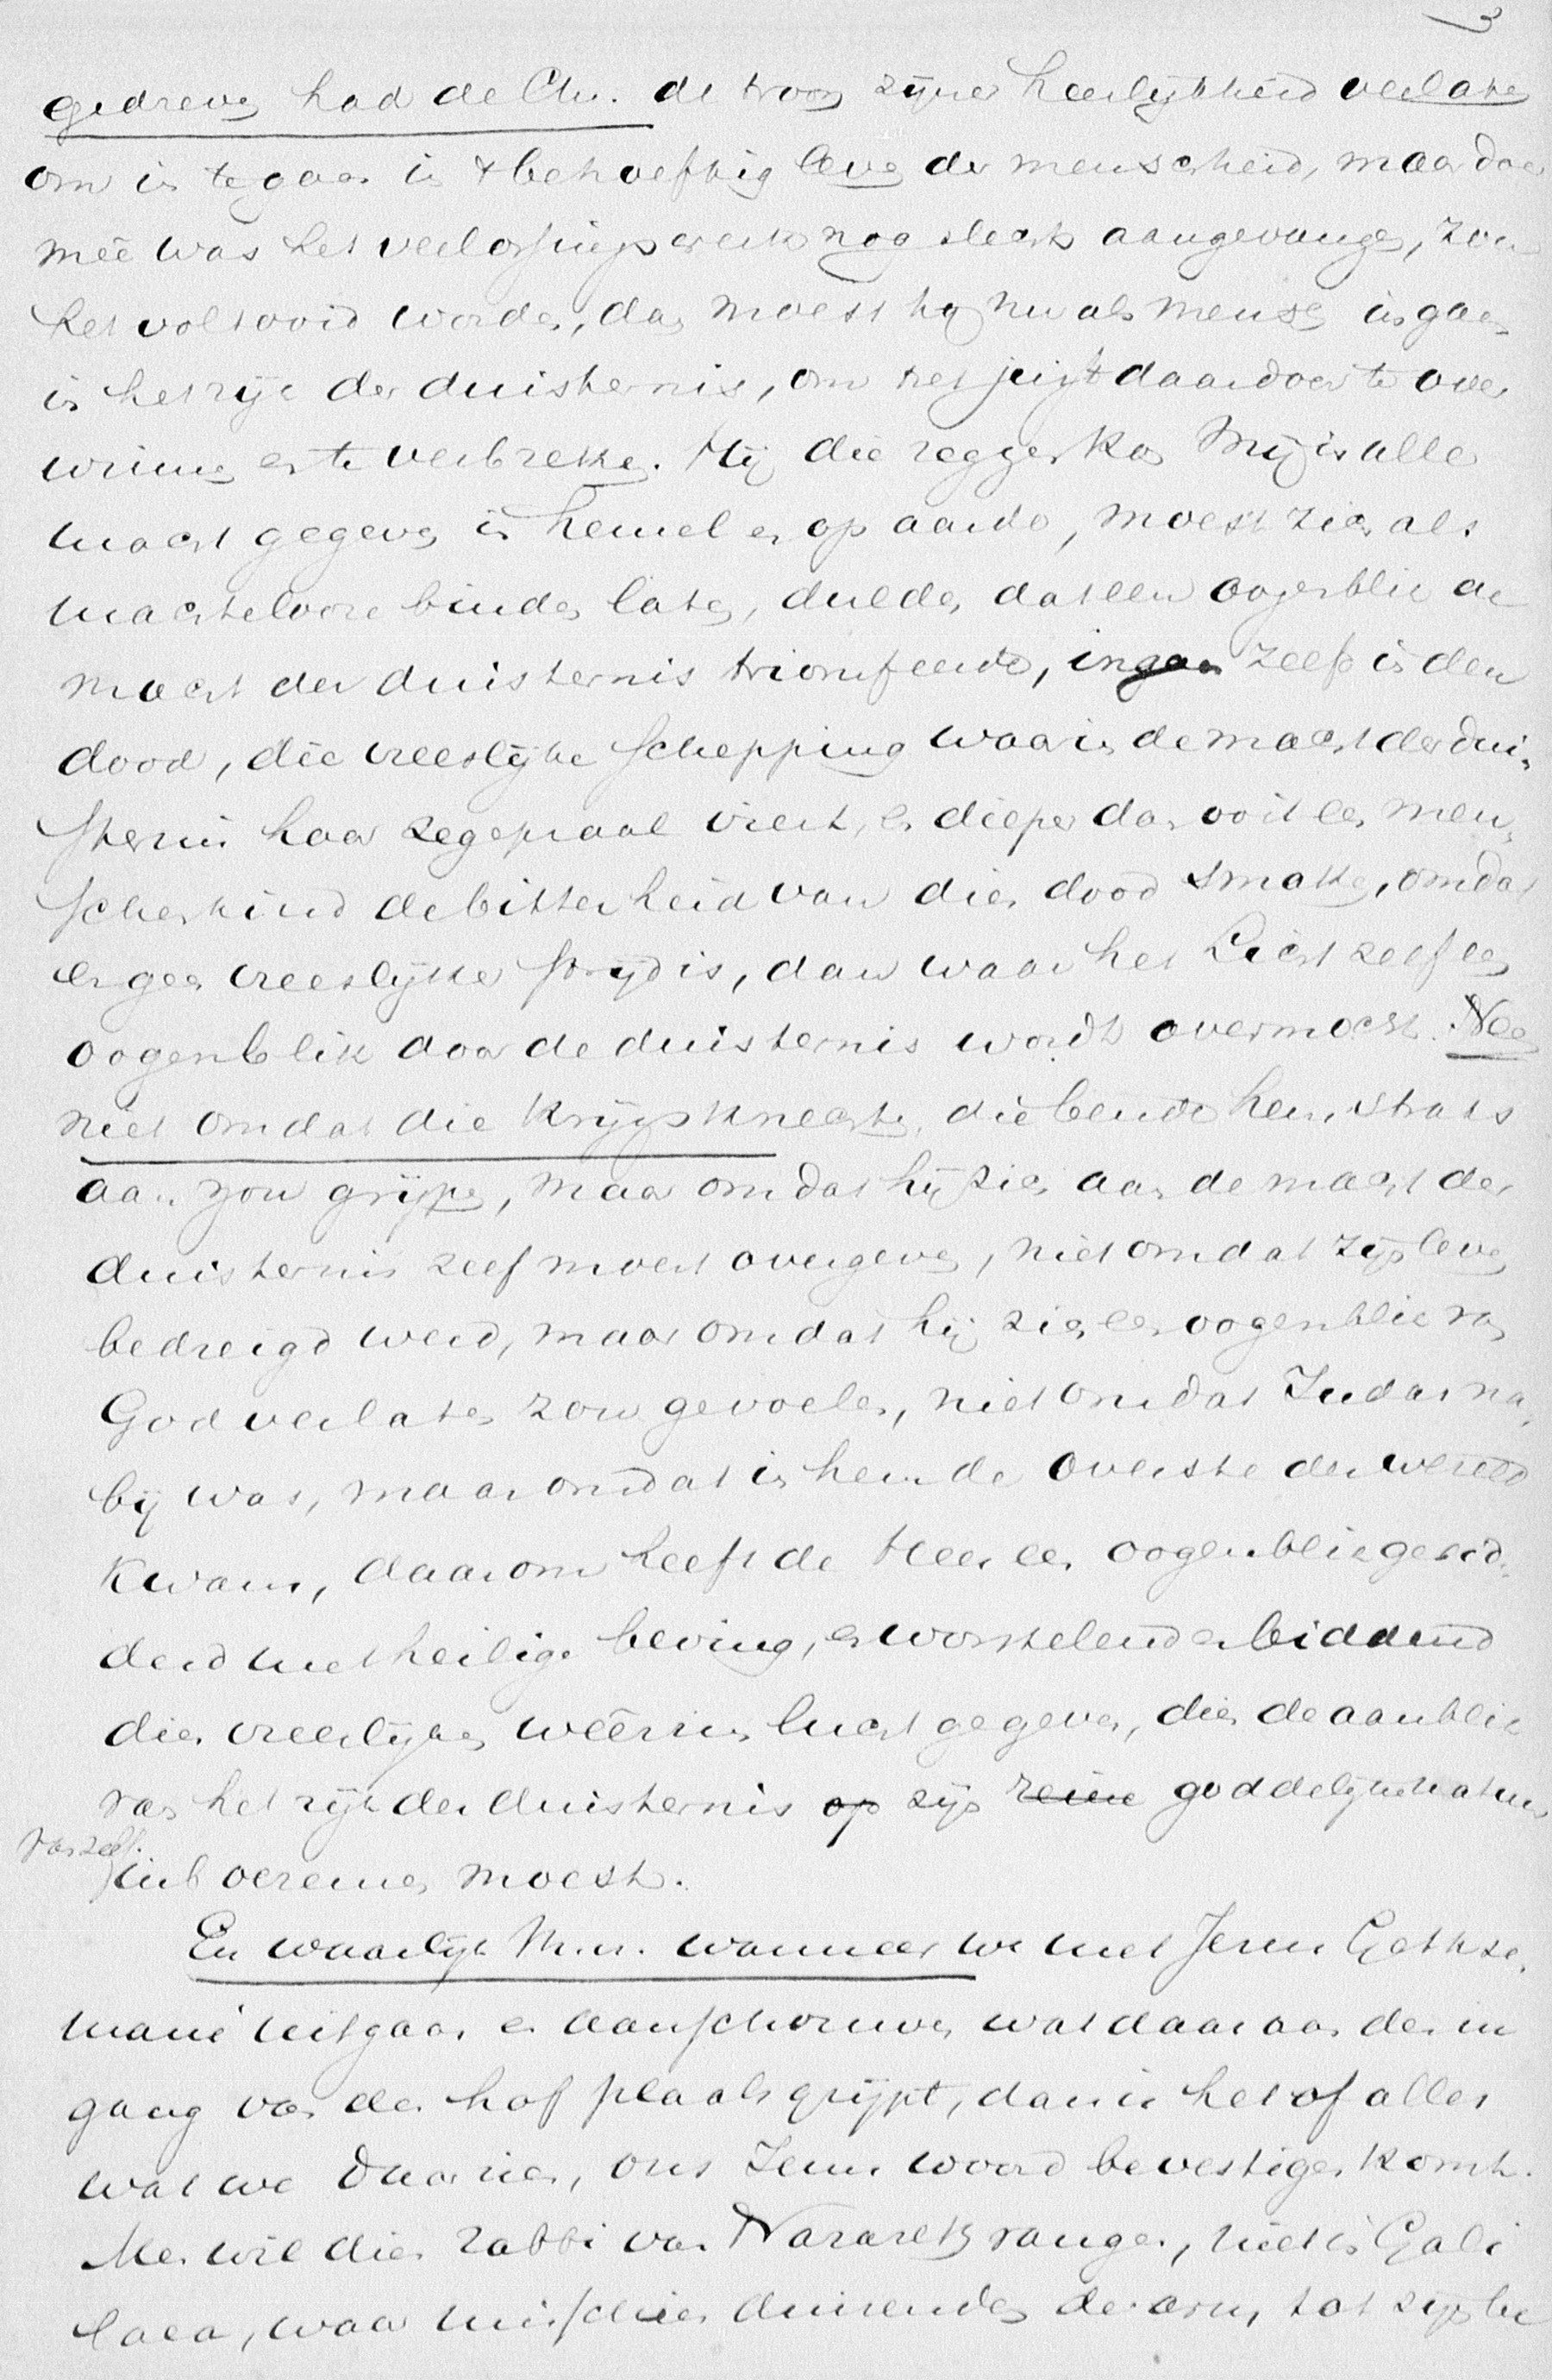 3
gedreven had de Chr. de troon zijner heerlijkheid verlaten
om in te gaan in 't behoeftig leven der menscheid, maar daar
meê was het verlossingswerk nog slechts aangevangen, zou
het voltooid worden, dan moest hij nu als mensch ingaan
in het rijk der duisternis, om het juist daardoor te over
winnen en te verbreken. Hij die zeggen kon Mij is alle
macht gegeven in hemel en op aarde, moest zich als
machtelooze binden laten, dulden dat een oogenblik de
macht der duisternis triomfeerde, ingaan zelf in den
dood, die vreeslijke schepping waarin de macht der dui-
sternis haar zegepraal viert, en dieper dan ooit een men-
schenkind de bitterheid van dien dood smaken, omdat
er geen vreeslijker strijd is, dan waar het Licht zelf een
oogenblik door de duisternis wordt overmocht. Neen
niet omdat die krijgsknechten, die bende hem straks
aan zou grijpen, maar omdat hij zich aan de macht der
duisternis zelf moest overgeven, niet omdat zijn leven
bedreigd werd, maar omdat hij zich een oogenblik van
God verlaten zou gevoelen, niet omdat Judas na-
bij was, maar omdat in hem de Overste der wereld
kwam, daarom heeft de Heer een oogenblik gesid-
derd met heilige beving, en worstelend en biddend
dien vreeslijken weêrzin lucht gegeven, dien de aanblik
van het rijk der duisternis op zijn reine goddelijke natuur
van zelf
inboezemen moest.
En waarlijk M.n. wanneer we met Jezus Gethse-
mané uitgaan en aanschouwen wat daar aan den in
gang van den hof plaats grijpt, dan is het of alles
wat we daar zien, ons Jezus woord bevestigen komt.
Men wil dien rabbi van Nazareth vangen, niet in Gali
laea, waar misschien duizenden de arm tot zijn be